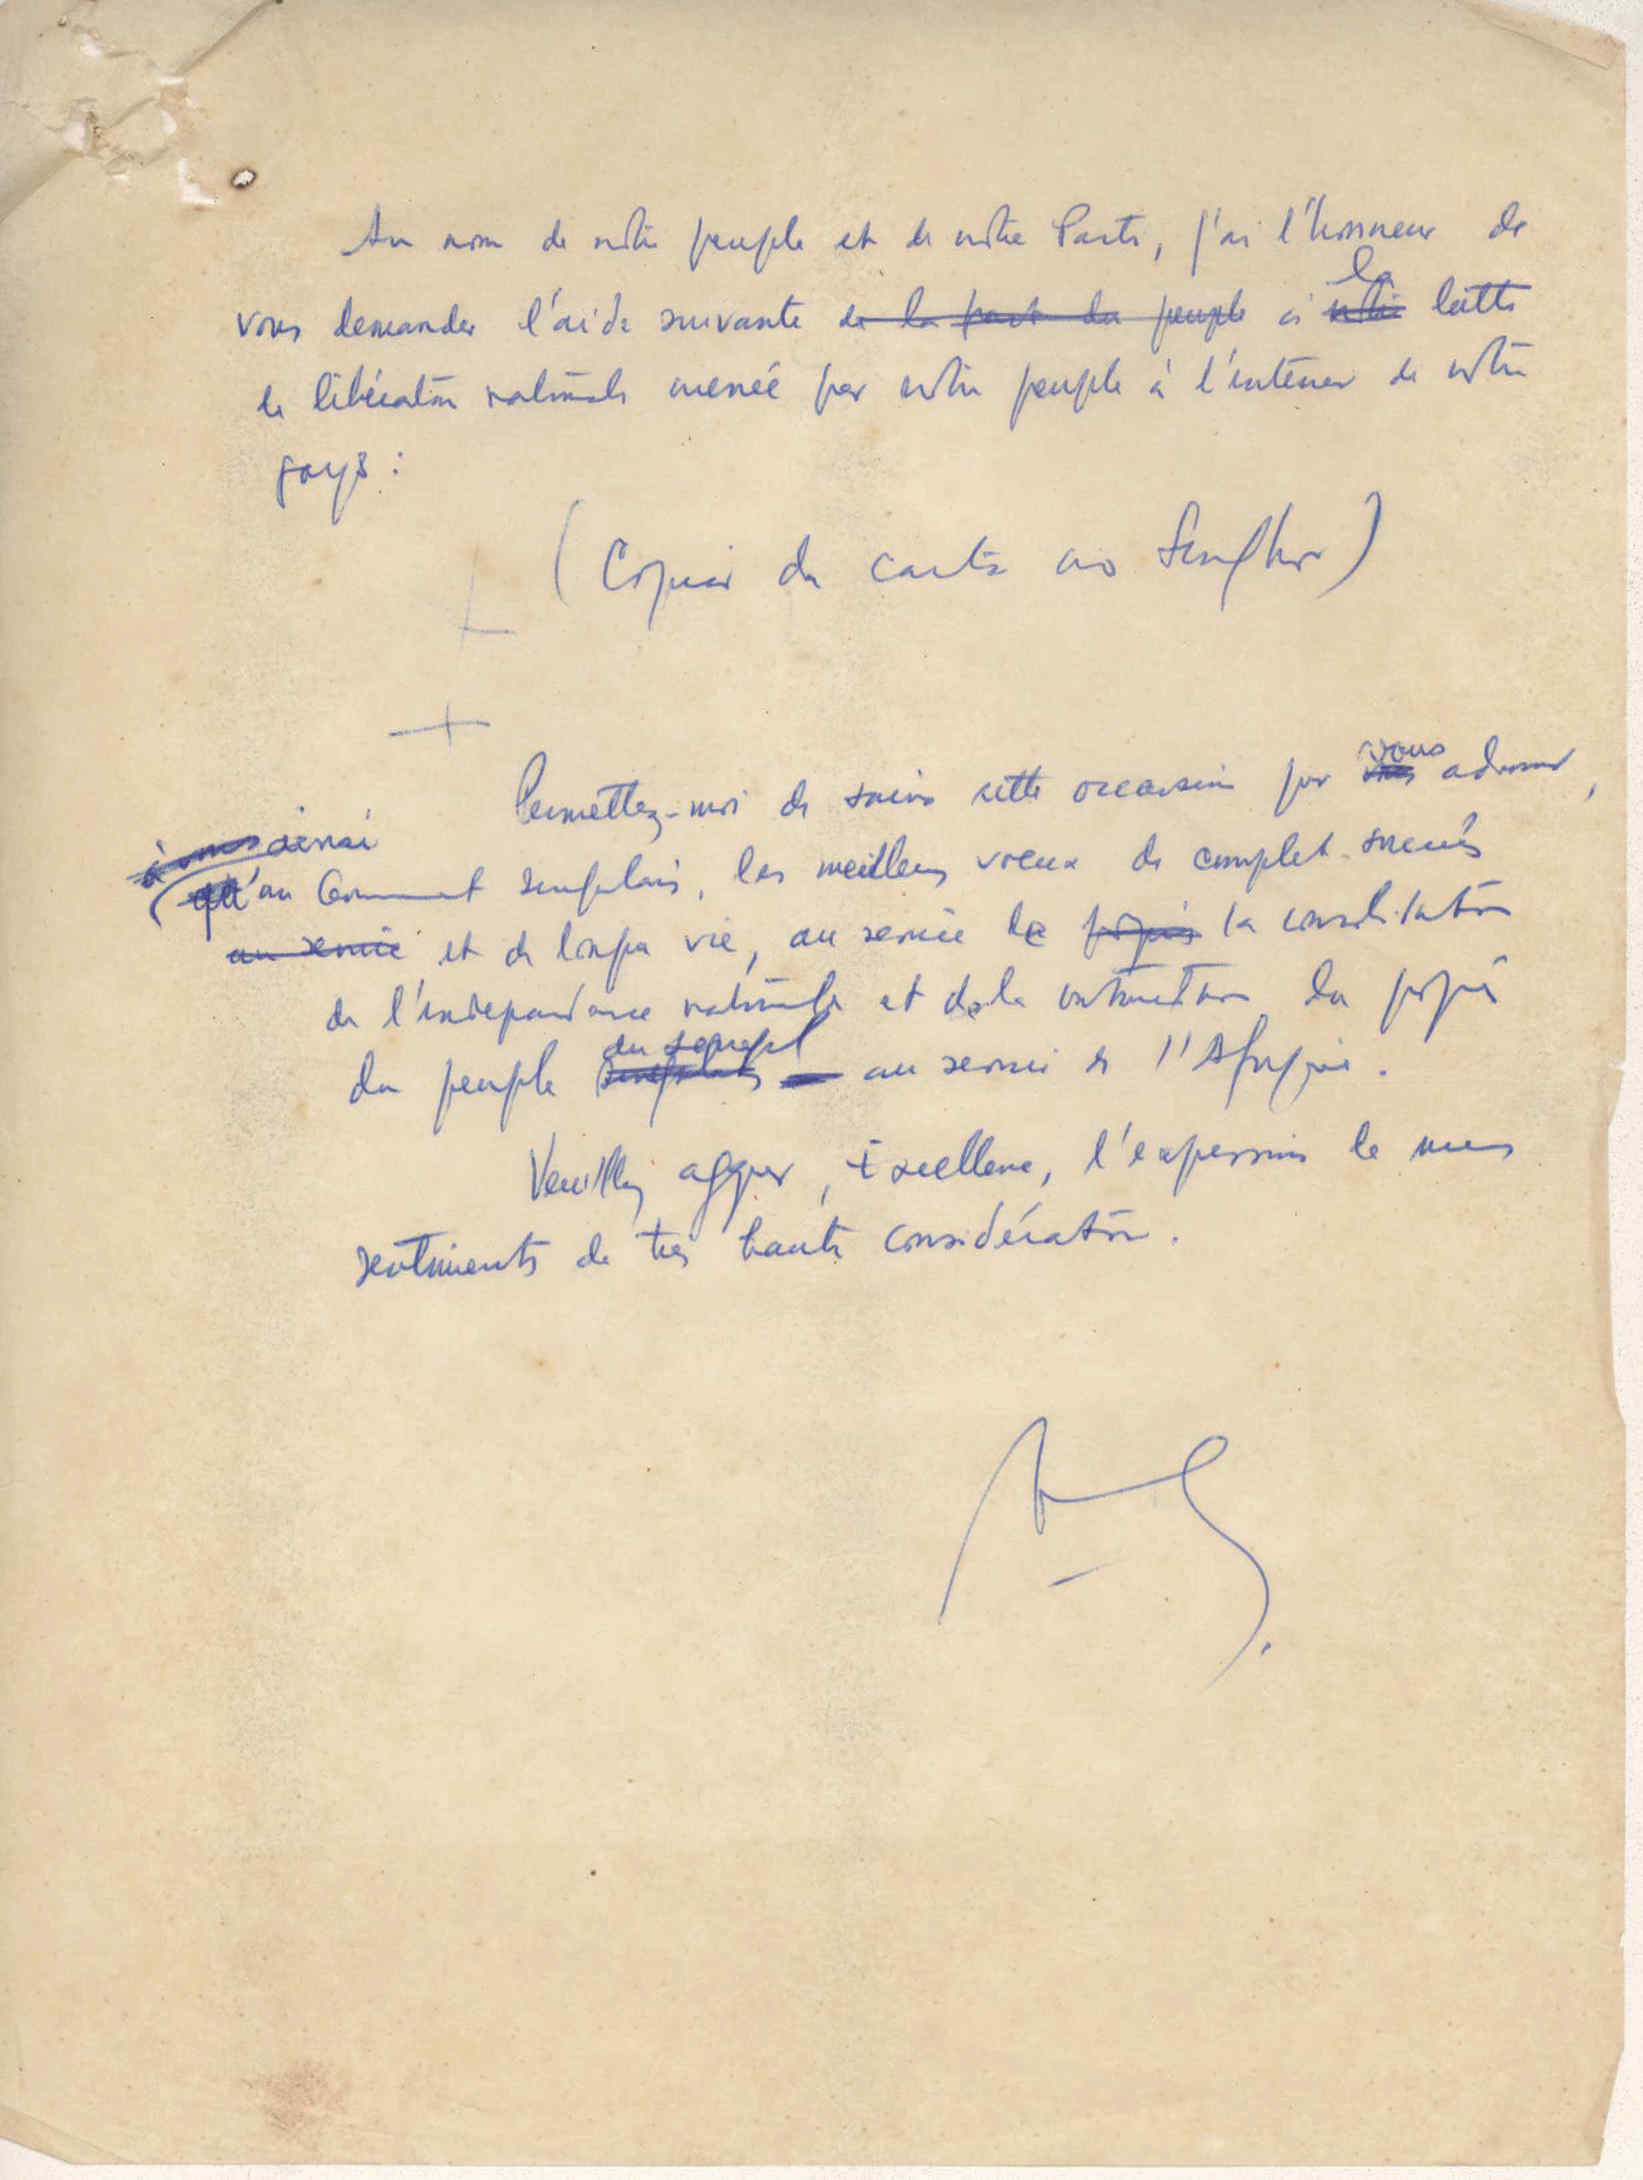 Au nom de notre peuple et de notre Parti, j'ai l'honneur de
vous demander l'aide suivante de la part du peuple à notre la lutte
de libération nationale menée par notre peuple à l'intérieur de notre
pays :
(Copiar da carta ao Senghor)
Permettez-moi de saisir cette occasion pour vous adresser,
à vous ainsi
qu'au Gouvernement sénégalais, les meilleurs voeux de complet succès
au service et de longue vie, au service de progrès la consolidation
de l'indépendance nationale et de la construction du progrès
du peuple sénégalais du Sénégal au service de l'Afrique.
Veuillez agréer, Excellence, l'expression de mes
sentiments de très haute considération.